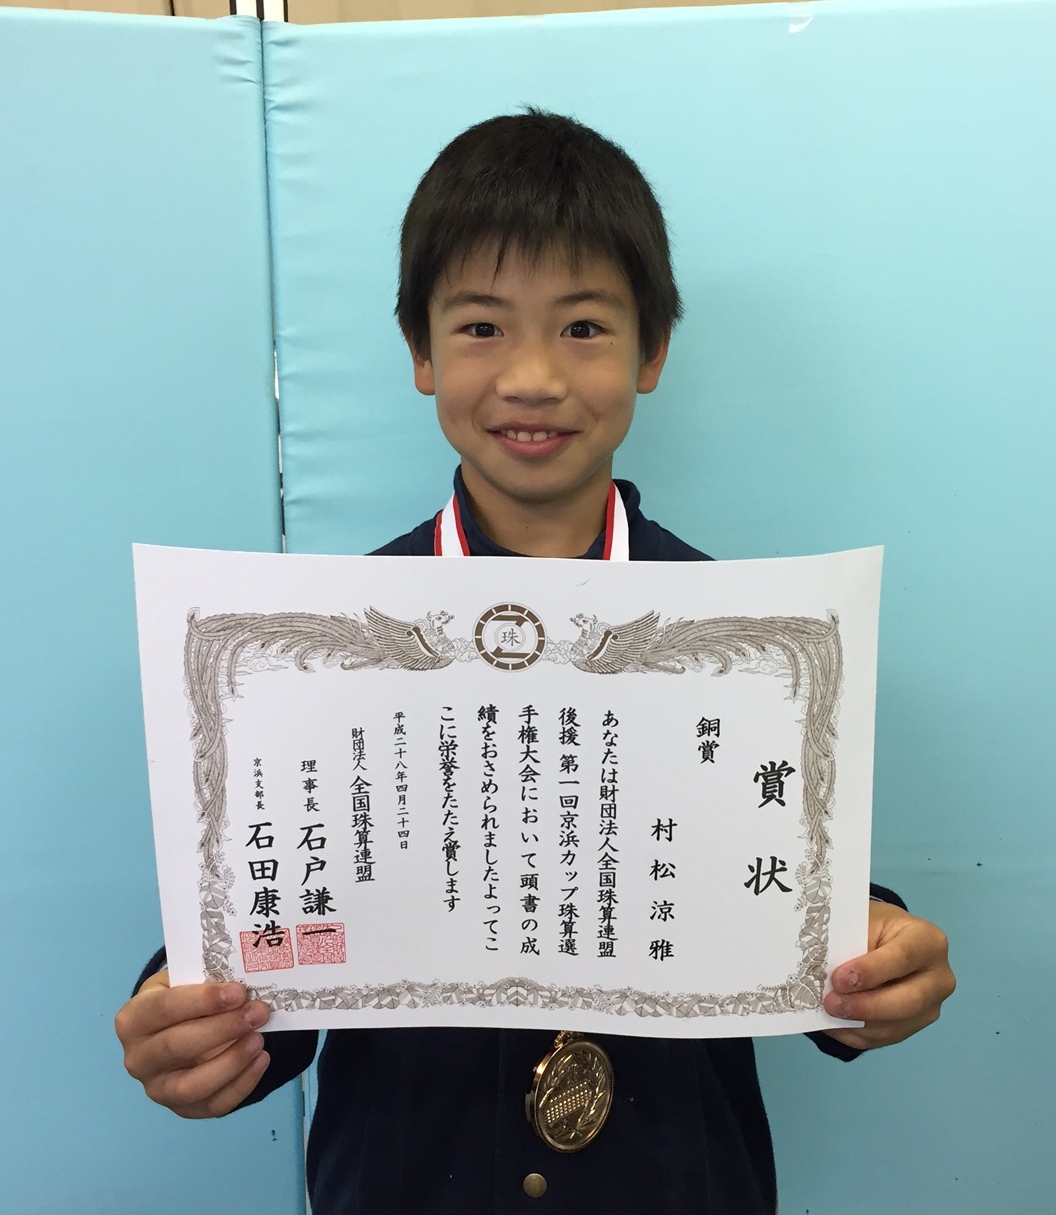 珠
賞状
銅賞
村松涼雅
あなたは財団法人全国珠算連盟
後援 第一回京浜カップ珠算選
手権大会において頭書の成
績をおさめられましたよってこ
こに栄誉をたたえ賞します
平成二十八年四月二十四日
財団法人 全国珠算連盟
理事長 石戸謙一
京浜支部長 石田康浩